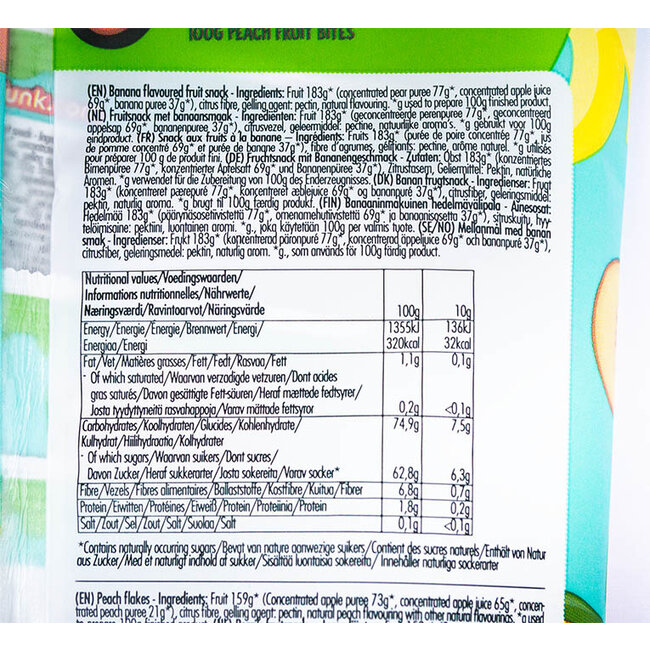 100G PEACH FRUIT BITES
unk.
(EN) Banana flavoured fruit snack - Ingredients: Fruit 183g* (concentrated pear puree 77g*, concentrated apple juice
69g*, banana puree 37g*), citrus fibre, gelling agent: pectin, natural flavouring. *g used to prepare 100g finished product.
(NL) Fruitsnack met banaansmaak - Ingrediënten: Fruit 183g* (geconcentreerde perenpuree 77g*, geconcentreerd
appelsap 69g*, bananenpuree 37g*), citrusvezel, geleermiddel: pectine, natuurlijke aroma's. *g gebruikt voor 100g
eindproduct. (FR) Snack aux fruits à la banane – Ingrédients: Fruit 183g* (purée de poire concentrée 77g*, jus
de pomme concentré 69g* et purée de banane 37g*), fibre d'agrumes, gélifiants: pectine, arôme naturel. *g utilisés
pour préparer 100 g de produit fini. (DE) Fruchtsnack mit Bananengeschmack - Zutaten: Obst 183g* (konzentriertes
Birnenpüree 77g*, konzentrierter Apfelsaft 69g* und Bananenpüree 37g*), Zitrusfasern, Geliermittel: Pektin, natürliche
Aromen. *g verwendet für die Zubereitung von 100g des Enderzeugnisses. (DK) Banan frugtsnack - Ingredienser: Frugt
183g* (koncentreret pærepuré 77g*, koncentreret æblejuice 69g* og bananpuré 37g*), citrusfiber, geleringsmiddel:
pektin, naturlig aroma. *g brugt til 100g færdig produkt. (FIN) Banaaninmakuinen hedelmävälipala - Ainesosat:
Hedelmää 183g* (päärynäsosetiivistettä 77g*, omenamehutiivistettä 69g* ja banaanisosetta 37g*), sitruskuitu, hyy-
telöimisaine: pektiini, luontainen aromi. *g., joka käytetään 100g per valmis tuote. (SE/NO) Mellanmål med banan
smak - Ingredienser: Frukt 183g* (koncentrerad päronpuré 77g*, koncentrerad äppeljuice 69g* och bananpuré 37g*),
citrusfiber, geleringsmedel: pektin, naturlig arom. *g., som används för 100g färdig product.
Nutritional values/Voedingswaarden/
Informations nutritionnelles/Nährwerte/
Næringsværdi/Ravintoarvot/Näringsvärde 100g 10g
Energy/Energie/Énergie/Brennwert/Energi/ 1355kJ 136kJ
Energiaa/Energi 320kcal 32kcal
Fat/Vet/Matières grasses/Fett/Fedt/Rasvaa/Fett 1,1g 0,1g
- Of which saturated/Waarvan verzadigde vetzuren/Dont acides
gras saturés/Davon gesättigte Fett-säuren/Heraf mættede fedtsyrer/
Josta tyydyttyneitä rasvahappoja/Varav mättade fettsyror 0,2g <0,1g
Carbohydrates/Koolhydraten/Glucides/Kohlenhydrate/ 74,9g 7,5g
Kulhydrat/Hiilihydraatia/Kolhydrater
- Of which sugars/Waarvan suikers/Dont sucres/
Davon Zucker/Heraf sukkerarter/Josta sokereita/Varav socker* 62,8g 6,3g
Fibre/Vezels/Fibres alimentaires/Ballaststoffe/Kostfibre/Kuitua/Fibrer 6,8g 0,7g
Protein/Eiwitten/Protéines/Eiweiß/Protein/Proteiinia/Protein 1,8g 0,2g
Salt/Zout/Sel/Zout/Salt/Suolaa/Salt 0,1g <0,1g
*Contains naturally occurring sugars/Bevat van nature aanwezige suikers/Contient des sucres naturels/Enthält von Natur
aus Zucker/Med et naturligt indhold af sukker/Sisältää luontaisia sokereita/ Innehåller naturligt sockerarter
(EN) Peach flakes - Ingredients: Fruit 159g* (Concentrated apple puree 73g*, concentrated apple juice 65g*, concen-
trated peach puree 21g*), citrus fibre, gelling agent: pectin, natural peach flavouring with other natural flavourings. *g used
to prepare 100g finished product.